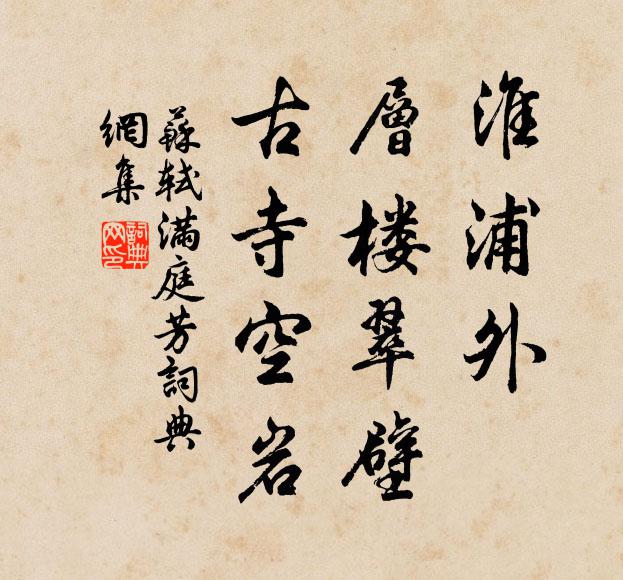 淮浦外
層楼翠壁
古寺空岩
蘇軾滿庭芳詞典
網集
詞典网印